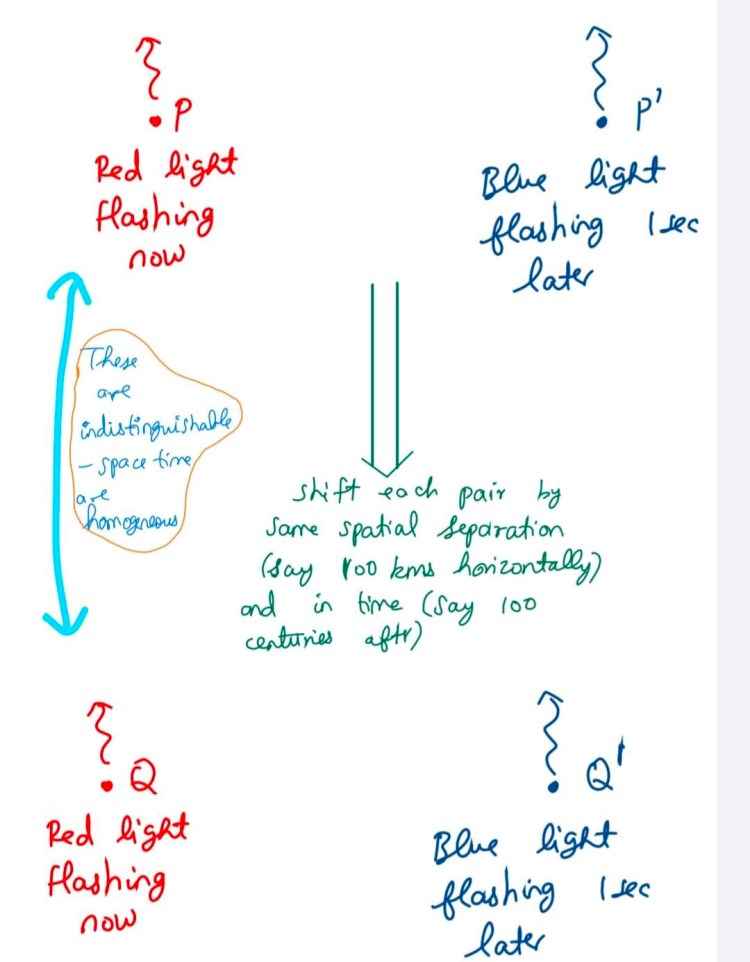 P
Red light
flashing
now
P'
Blue light
flashing 1 sec
later
These
are
indistinguishable
- space time
are
homogeneous
shift each pair by
same spatial separation
(say 100 kms horizontally)
and in time (say 100
centuries aftr)
Q
Red light
flashing
now
Q'
Blue light
flashing 1 sec
later